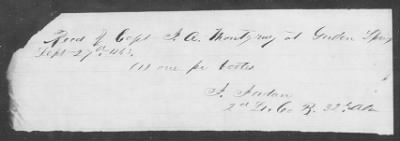 Recd of Capt J. A. Montgomery at Green Spring
Sept 27th 1863
(1) one pr boots
J. Jordan
2nd Lt Co B. 32d Ala